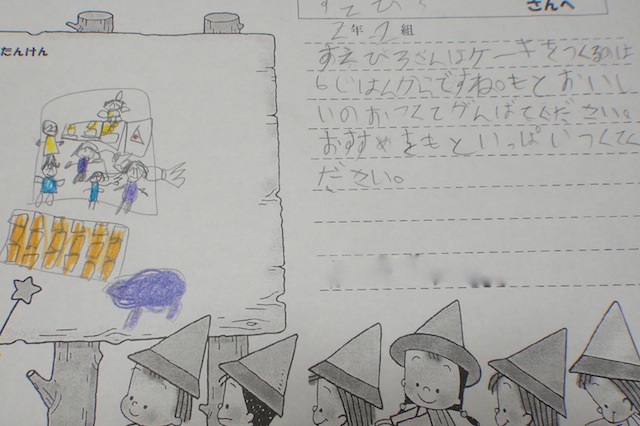 さんへ
たんけん
2年2組
すえひろさんはケーキをつくるのは
6じはんからですね。もとおいし
いのおつくてがんばてください。
おすすめをもといっぱいつくてく
ださい。